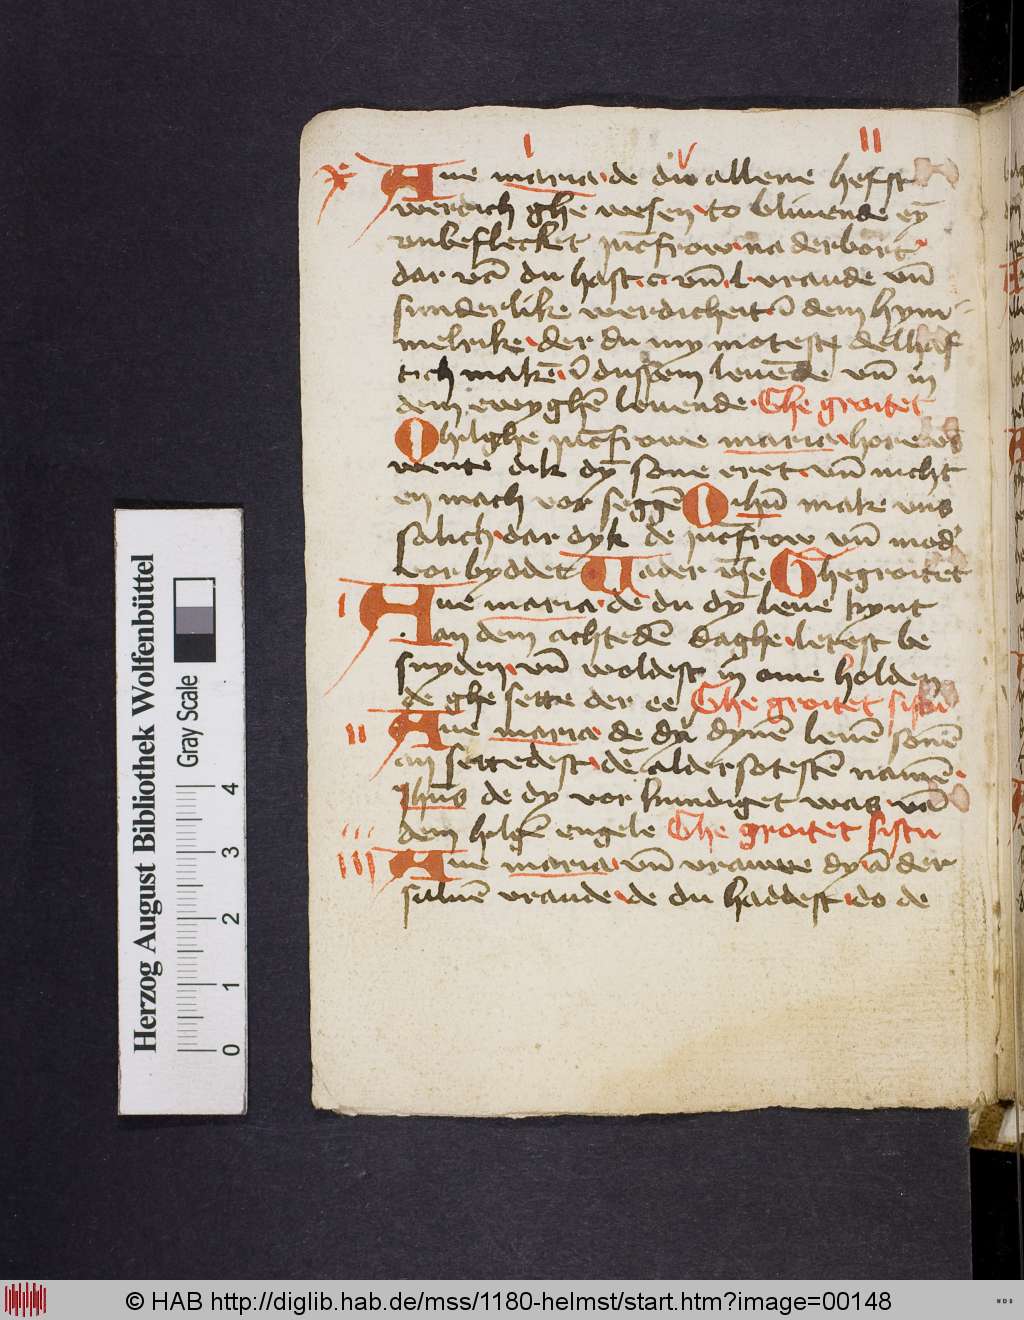 I v II
x Aue maria de dw allene hefst
werdich ghe wesen to bliuende eȳ
vnbeflecket jūcfrow na der bort
dar vā du hast c vn̄ l vraude vn̄
sunderlike werdicheit ī dem hym
melrike der du my motest delhaf
tich makē ī dussem leuēde vn̄ in
dem ewyghē leuende Ghe grotet
O hilghe jūcfrowe maria
wente dik dȳ sone eret vn̄ nicht
en mach vor seggē O ihū make vns
salich dar dyk de jūcfrow vn̄ mod'
vor byddet Ghegrotet
I Aue maria de du dȳ leue kynt
an dem achtedē daghe letest be
snyden vn̄ woldest holden
de ghe sette der ee Ghe grotet sistu
II Aue maria de dynē leuē sonē
an settedest dē aldersotestē namē
ihūs de dy vor kundiget was vā
dem hilgē engele Ghe grotet sistu
III Aue maria vn̄ vrauwe dy der
suluē vraude de du haddest do de
Herzog August Bibliothek Wolfenbüttel
Gray Scale
0 1 2 3 4
© HAB http://diglib.hab.de/mss/1180-helmst/start.htm?image=00148